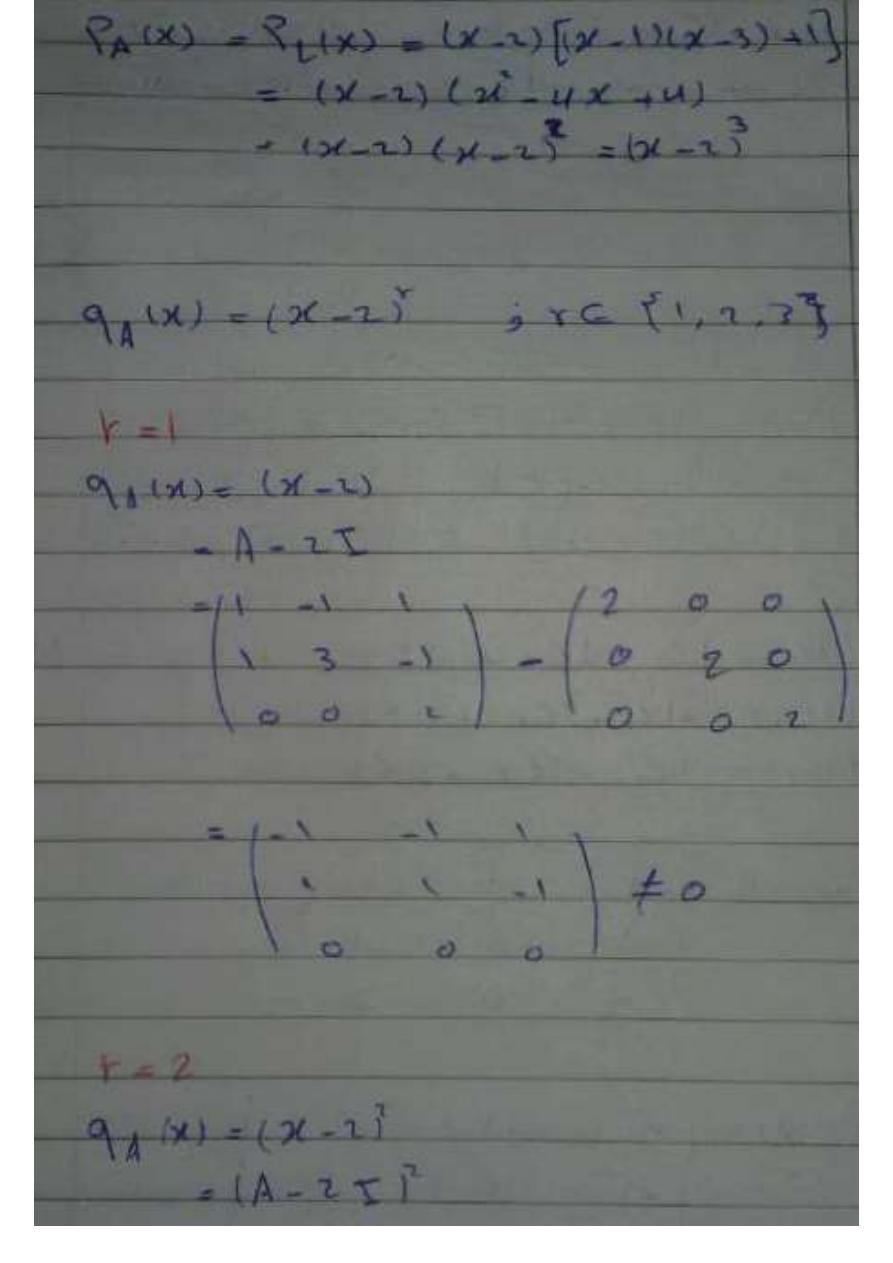 P_A(x) = P_L(x) = (x-2)[(x-1)(x-3)+1]
= (x-2)(x²-4x+4)
= (x-2)(x-2)² = (x-2)³
q_A(x) = (x-2)^r ; r ∈ {1, 2, 3}
r = 1
q_A(x) = (x-2)
= A - 2I
= ( 1 -1 1 ) - ( 2 0 0 )
( 1 3 -1 ) ( 0 2 0 )
( 0 0 2 ) ( 0 0 2 )
= ( -1 -1 1 )
( 1 1 -1 ) ≠ 0
( 0 0 0 )
r = 2
q_A(x) = (x-2)²
= (A - 2I)²